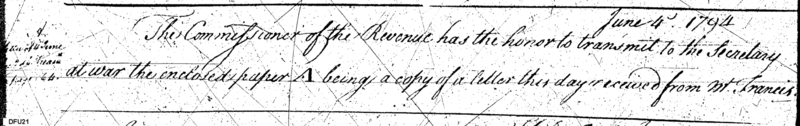 June 4th 1794
The Commissioner of the Revenue has the honor to transmit to the Secretary
at war the enclosed paper A being a copy of a letter this day received from Mr. Francis.
DFU21